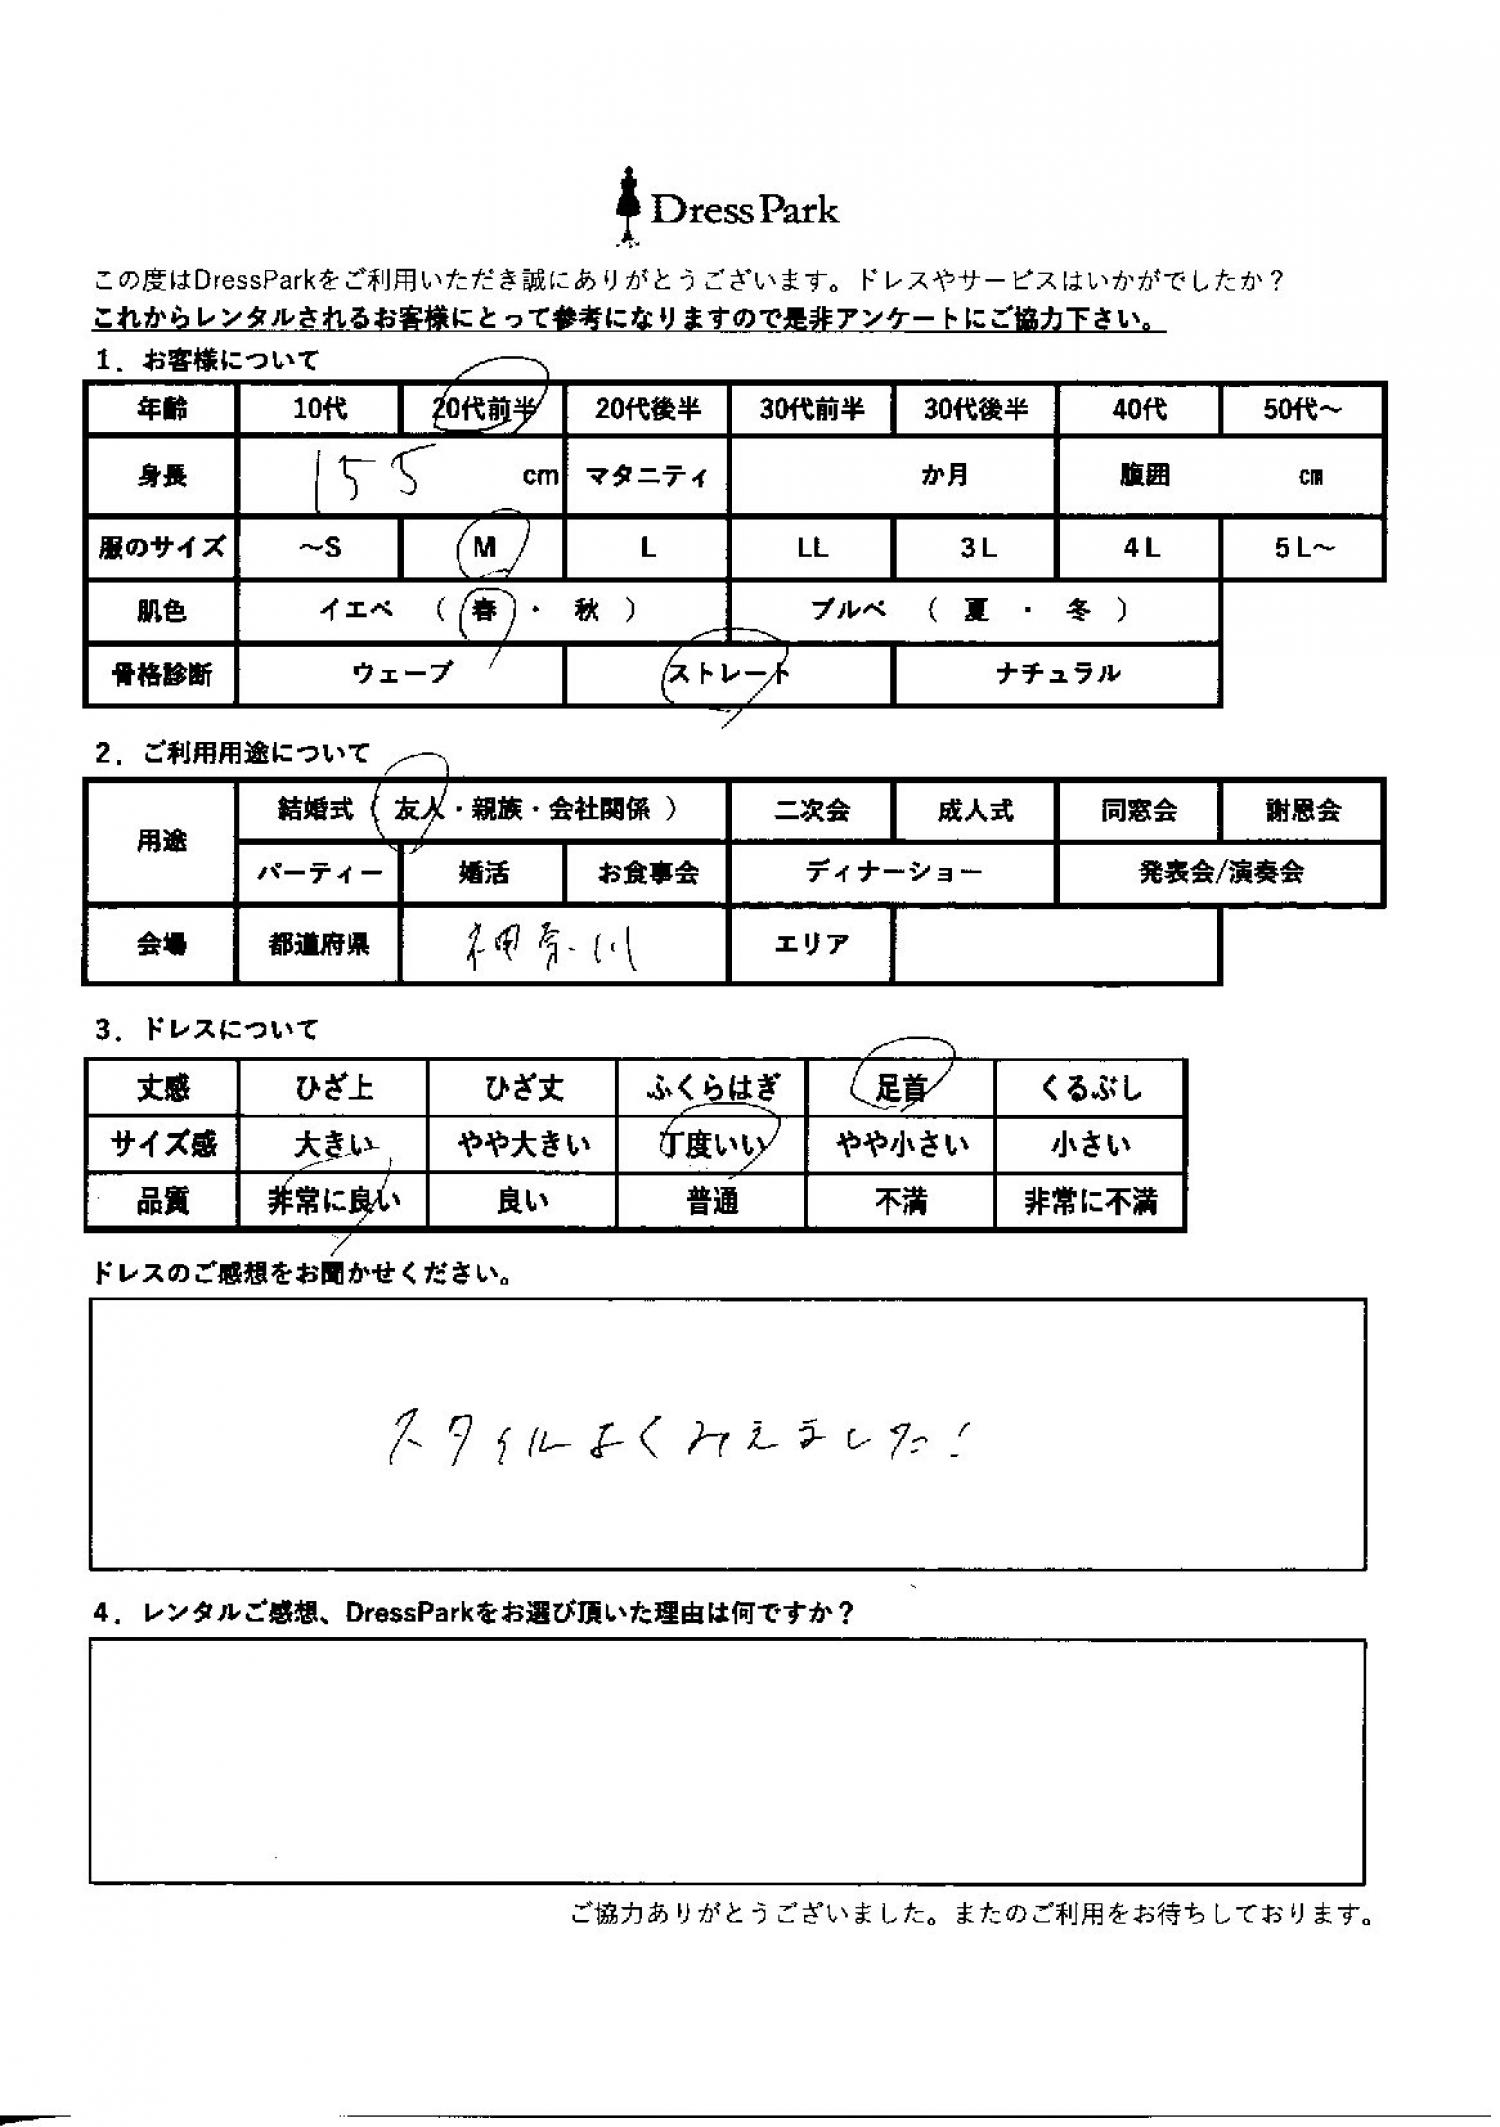 DressPark
この度はDressParkをご利用いただき誠にありがとうございます。ドレスやサービスはいかがでしたか？
これからレンタルされるお客様にとって参考になりますので是非アンケートにご協力下さい。
1．お客様について
年齢 10代 20代前半 20代後半 30代前半 30代後半 40代 50代～
身長 155 cm マタニティ か月 腹囲 cm
服のサイズ ～S M L LL 3L 4L 5L～
肌色 イエベ （ 春 ・ 秋 ） ブルベ （ 夏 ・ 冬 ）
骨格診断 ウェーブ ストレート ナチュラル
2．ご利用用途について
用途 結婚式（ 友人・親族・会社関係 ） 二次会 成人式 同窓会 謝恩会
パーティー 婚活 お食事会 ディナーショー 発表会/演奏会
会場 都道府県 神奈川 エリア
3．ドレスについて
丈感 ひざ上 ひざ丈 ふくらはぎ 足首 くるぶし
サイズ感 大きい やや大きい 丁度いい やや小さい 小さい
品質 非常に良い 良い 普通 不満 非常に不満
ドレスのご感想をお聞かせください。
スタイルよくみえました！
4．レンタルご感想、DressParkをお選び頂いた理由は何ですか？
ご協力ありがとうございました。またのご利用をお待ちしております。